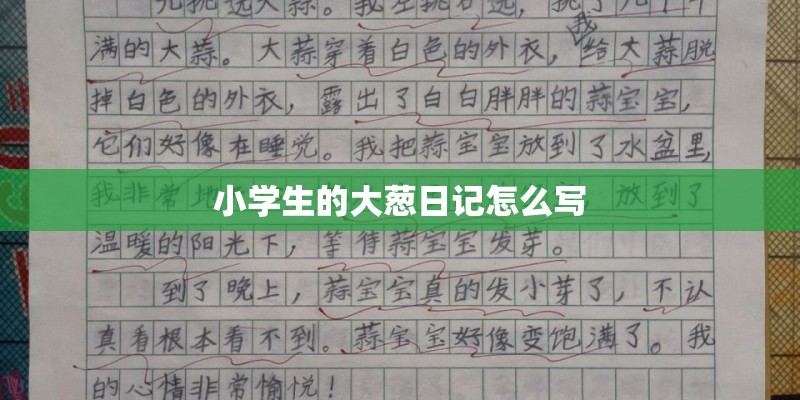 先挑选大蒜。我左挑右选,挑了几十个
满的大蒜。大蒜穿着白色的外衣,我给大蒜脱
掉白色的外衣,露出了白白胖胖的蒜宝宝,
它们好像在睡觉。我把蒜宝宝放到了水盆里,
我非常地 放到了
小学生的大葱日记怎么写
温暖的阳光下,等待蒜宝宝发芽。
到了晚上,蒜宝宝真的发小芽了,不认
真看根本看不到。蒜宝宝好像变饱满了。我
的心情非常愉悦!